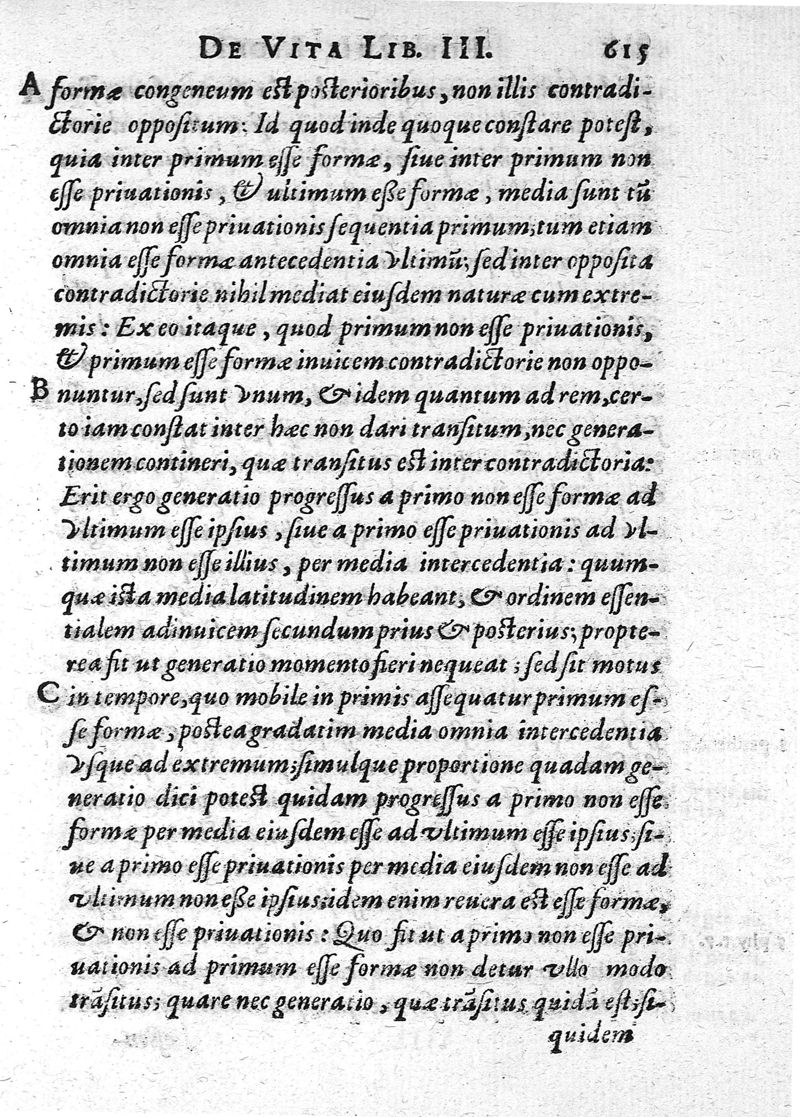 DE VITA LIB. III. 615
A formæ congeneum est posterioribus, non illis contradi-
ctorie oppositum: Id quod inde quoque constare potest,
quia inter primum esse formæ, siue inter primum non
esse priuationis, & ultimum eße formæ, media sunt tū
omnia non esse priuationis sequentia primum; tum etiam
omnia esse formæ antecedentia vltimū; sed inter opposita
contradictorie nihil mediat eiusdem naturæ cum extre-
mis: Ex eo itaque, quod primum non esse priuationis,
& primum esse formæ inuicem contradictorie non oppo-
B nuntur, sed sunt vnum, & idem quantum ad rem, cer-
to iam constat inter hæc non dari transitum, nec genera-
tionem contineri, quæ transitus est inter contradictoria:
Erit ergo generatio progressus a primo non esse formæ ad
vltimum esse ipsius, siue a primo esse priuationis ad vl-
timum non esse illius, per media intercedentia: quum-
quæ ista media latitudinem habeant, & ordinem essen-
tialem adinuicem secundum prius & posterius; propte-
rea fit ut generatio momento fieri nequeat; sed sit motus
C in tempore, quo mobile in primis assequatur primum es-
se formæ, postea gradatim media omnia intercedentia
vsque ad extremum; simulque proportione quadam ge-
neratio dici potest quidam progressus a primo non esse
formæ per media eiusdem esse ad vltimum esse ipsius; si-
ue a primo esse priuationis per media eiusdem non esse ad
vltimum non eße ipsius; idem enim reuera est esse formæ,
& non esse priuationis: Quo fit ut a primo non esse pri-
uationis ad primum esse formæ non detur vllo modo
trāsitus; quare nec generatio, quæ trāsitus quidā est; si-
quidem